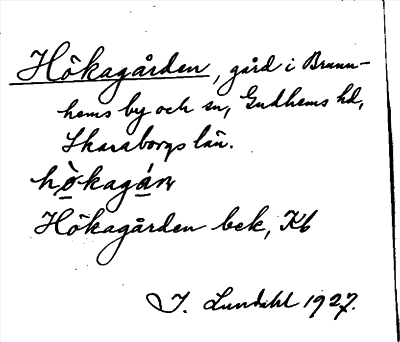 Hökagården, gård i Brunn-
hems by och sn, Gudhems hd,
Skaraborgs län.
hö̀kagán
Hökagården bek, Kb
I. Lundahl 1927.